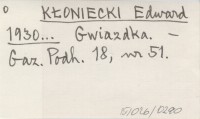 o KŁONIECKI Edward
1930... Gwiazdka. –
Gaz. Podh. 18, nr 51.